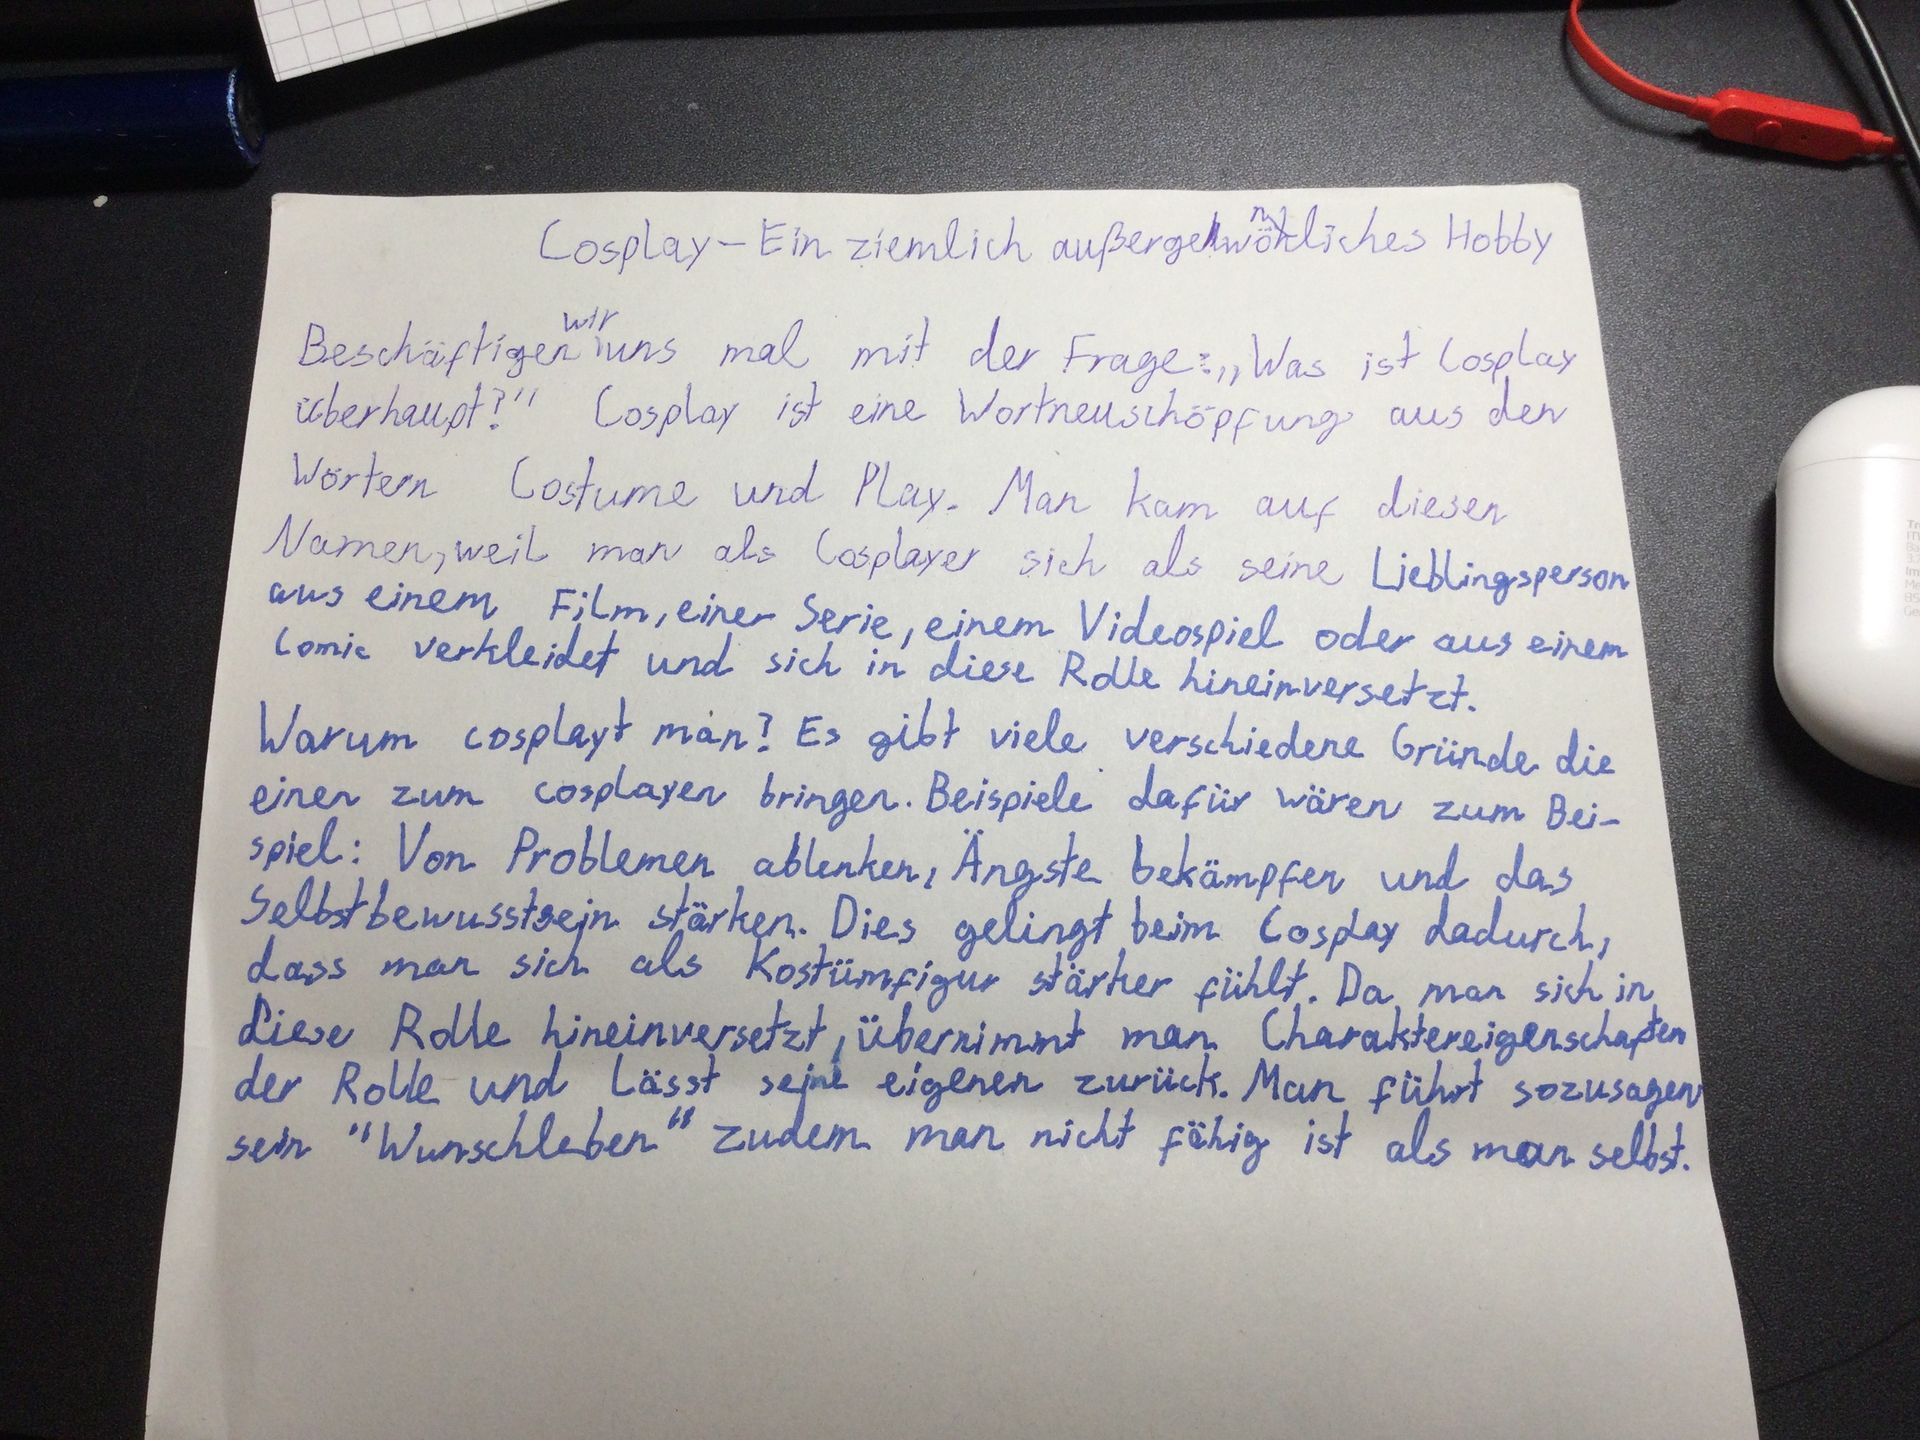 Cosplay – Ein ziemlich außergewöhnliches Hobby
Beschäftigen wir uns mal mit der Frage: „Was ist Cosplay
überhaupt?“ Cosplay ist eine Wortneuschöpfung aus den
Wörtern Costume und Play. Man kam auf diesen
Namen, weil man als Cosplayer sich als seine Lieblingsperson
aus einem Film, einer Serie, einem Videospiel oder aus einem
Comic verkleidet und sich in diese Rolle hineinversetzt.
Warum cosplayt man? Es gibt viele verschiedene Gründe die
einen zum cosplayen bringen. Beispiele dafür wären zum Bei-
spiel: Von Problemen ablenken, Ängste bekämpfen und das
Selbstbewusstsein stärken. Dies gelingt beim Cosplay dadurch,
dass man sich als Kostümfigur stärker fühlt. Da man sich in
diese Rolle hineinversetzt, übernimmt man Charaktereigenschaften
der Rolle und lässt seine eigenen zurück. Man führt sozusagen
sein "Wunschleben" zudem man nicht fähig ist als man selbst.